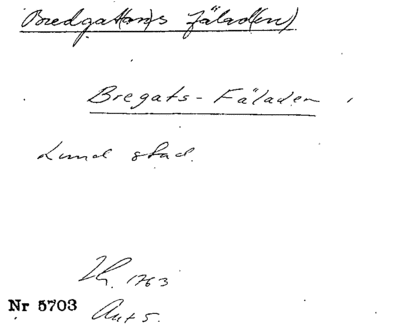 Bredgat(an)s Fälad(en)
Bregats-Fäladen
Lund stad.
Lh. 1763
Nr 5703
Ant 5.